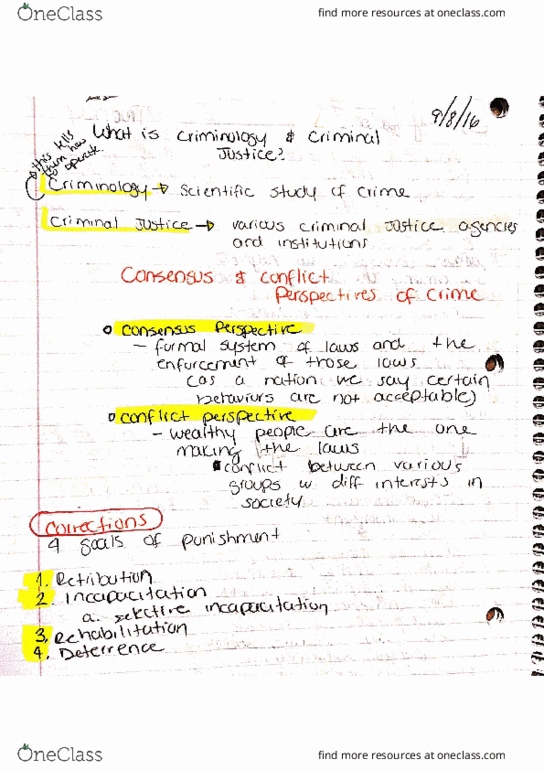 OneClass
find more resources at oneclass.com
9/8/16
What is criminology & criminal
Justice?
this tells
them how
to operate
Criminology → scientific study of crime
Criminal Justice → various criminal justice agencies
and institutions
Consensus & conflict
Perspectives of Crime
consensus perspective
- formal system of laws and the
enforcement of those laws
(as a nation we say certain
behaviors are not acceptable)
conflict perspective
- wealthy people are the one
making the laws
conflict between various
groups w diff interests in
society
Corrections
4 goals of punishment
1. Retribution
2. Incapacitation
a. selective incapacitation
3. Rehabilitation
4. Deterrence
OneClass
find more resources at oneclass.com